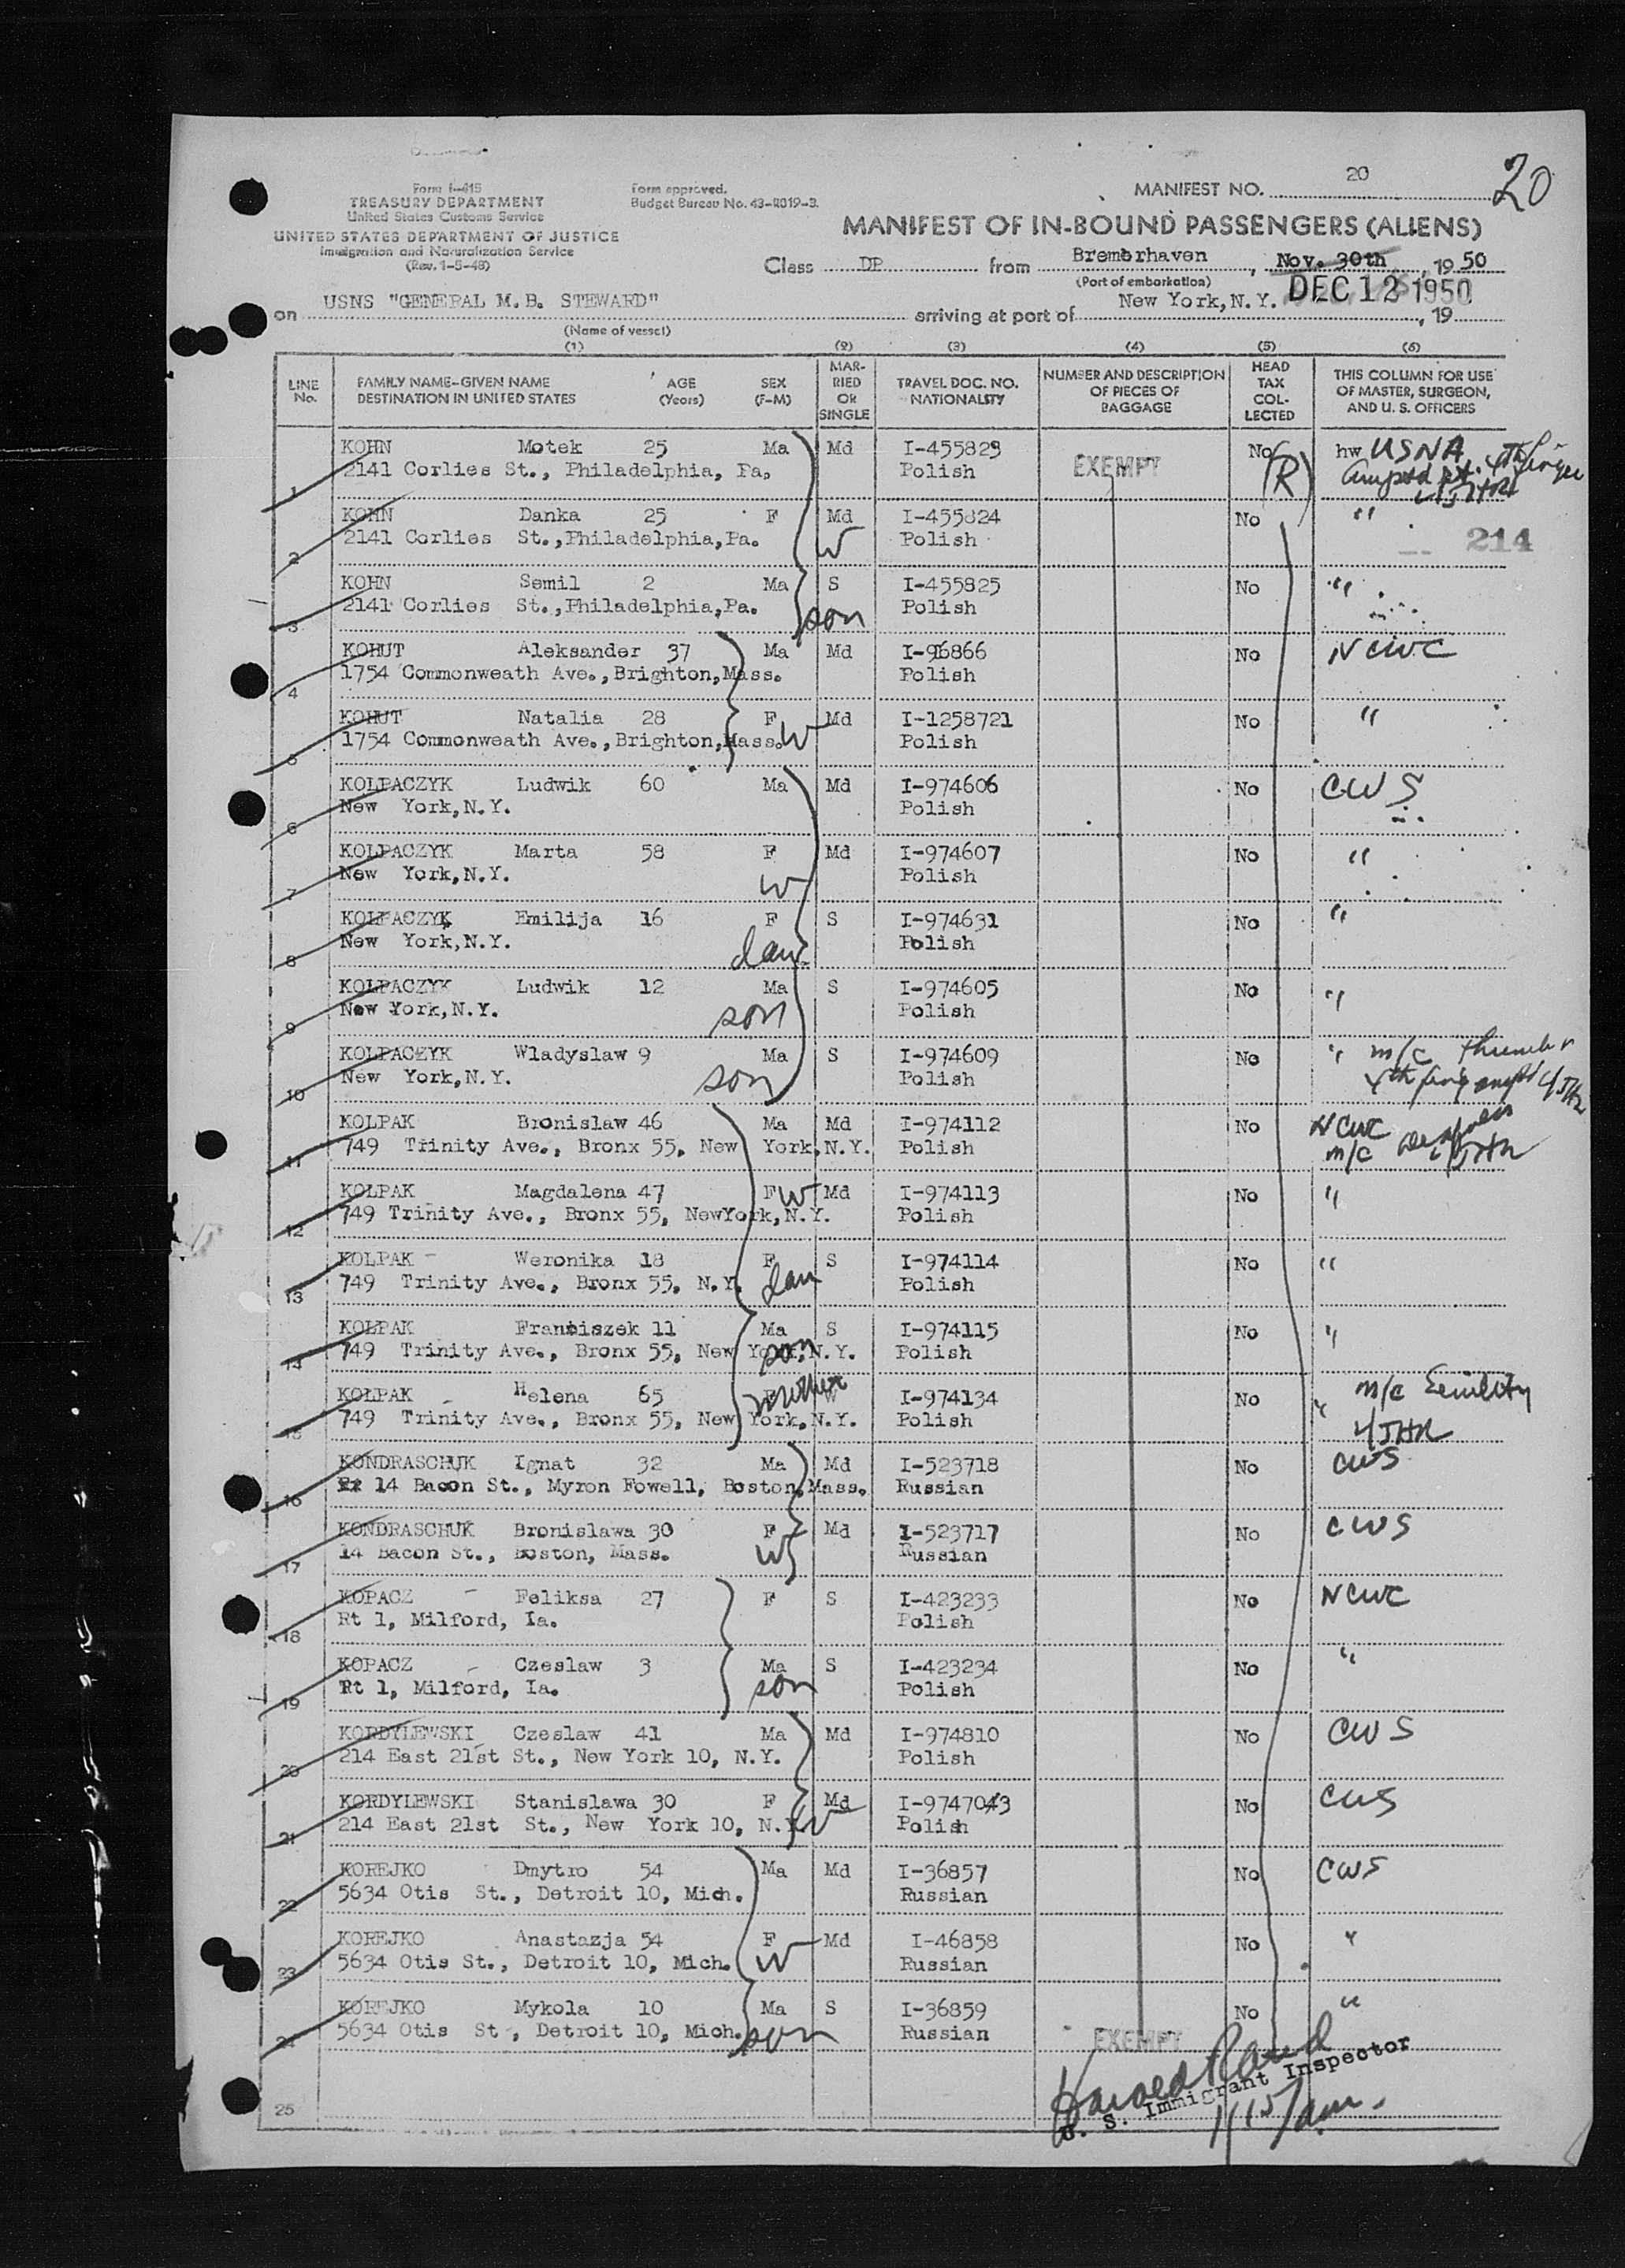 Form I-415
TREASURY DEPARTMENT
United States Customs Service
UNITED STATES DEPARTMENT OF JUSTICE
Immigration and Naturalization Service
(Rev. 1-5-48)
Form approved.
Budget Bureau No. 43-R019-3.
MANIFEST NO. 20
20
MANIFEST OF IN-BOUND PASSENGERS (ALIENS)
Class DP from Bremerhaven, Nov. 30th, 1950
(Port of embarkation)
on USNS "GENERAL M.B. STEWARD" arriving at port of New York, N.Y. DEC 12 1950, 19
(Name of vessel)
(1) (2) (3) (4) (5) (6)
LINE No. FAMILY NAME-GIVEN NAME DESTINATION IN UNITED STATES AGE (Years) SEX (F-M) MARRIED OR SINGLE TRAVEL DOC. NO. NATIONALITY NUMBER AND DESCRIPTION OF PIECES OF BAGGAGE HEAD TAX COLLECTED THIS COLUMN FOR USE OF MASTER, SURGEON, AND U. S. OFFICERS
1 KOHN Motek 25 Ma Md I-455823 EXEMPT No (R) hw USNA
2141 Corlies St., Philadelphia, Pa. Polish
2 KOHN Danka 25 F Md W I-455824 No "
2141 Corlies St.,Philadelphia,Pa. Polish 214
3 KOHN Semil 2 Ma S I-455825 No "
2141 Corlies St.,Philadelphia,Pa. son Polish
4 KOHUT Aleksander 37 Ma Md I-96866 No NCWC
1754 Commonweath Ave.,Brighton,Mass. Polish
5 KOHUT Natalia 28 F Md I-1258721 No "
1754 Commonweath Ave.,Brighton,Mass. W Polish
6 KOLPACZYK Ludwik 60 Ma Md I-974606 No CWS
New York,N.Y. Polish
7 KOLPACZYK Marta 58 F Md I-974607 No "
New York,N.Y. W Polish
8 KOLPACZYK Emilija 16 F S I-974631 No "
New York,N.Y. dau Polish
9 KOLPACZYK Ludwik 12 Ma S I-974605 No "
New York,N.Y. son Polish
10 KOLPACZYK Wladyslaw 9 Ma S I-974609 No " m/c thumb
New York,N.Y. son Polish 4th
11 KOLPAK Bronislaw 46 Ma Md I-974112 No NCWC
749 Trinity Ave., Bronx 55, New York,N.Y. Polish m/c
12 KOLPAK Magdalena 47 F W Md I-974113 No "
749 Trinity Ave., Bronx 55, NewYork,N.Y. Polish
13 KOLPAK Weronika 18 F S I-974114 No "
749 Trinity Ave., Bronx 55, N.Y. dau Polish
14 KOLPAK Franciszek 11 Ma S I-974115 No "
749 Trinity Ave., Bronx 55, New York,N.Y. son Polish
15 KOLPAK Helena 65 F mother W I-974134 No " m/c Senility
749 Trinity Ave., Bronx 55, New York,N.Y. Polish
16 KONDRASCHUK Ignat 32 Ma Md I-523718 No CWS
14 Bacon St., Myron Fowell, Boston,Mass. Russian
17 KONDRASCHUK Bronislawa 30 F Md I-523717 No CWS
14 Bacon St., Boston, Mass. W Russian
18 KOPACZ Feliksa 27 F S I-423233 No NCWC
Rt 1, Milford, Ia. Polish
19 KOPACZ Czeslaw 3 Ma S I-423234 No "
Rt 1, Milford, Ia. son Polish
20 KORDYLEWSKI Czeslaw 41 Ma Md I-974810 No CWS
214 East 21st St., New York 10, N.Y. Polish
21 KORDYLEWSKI Stanislawa 30 F Md I-9747043 No CWS
214 East 21st St., New York 10, N.Y. W Polish
22 KOREJKO Dmytro 54 Ma Md I-36857 No CWS
5634 Otis St., Detroit 10, Mich. Russian
23 KOREJKO Anastazja 54 F Md I-46858 No "
5634 Otis St., Detroit 10, Mich. W Russian
24 KOREJKO Mykola 10 Ma S I-36859 No "
5634 Otis St., Detroit 10, Mich. son Russian EXEMPT
Harold Rand
U. S. Immigrant Inspector
25